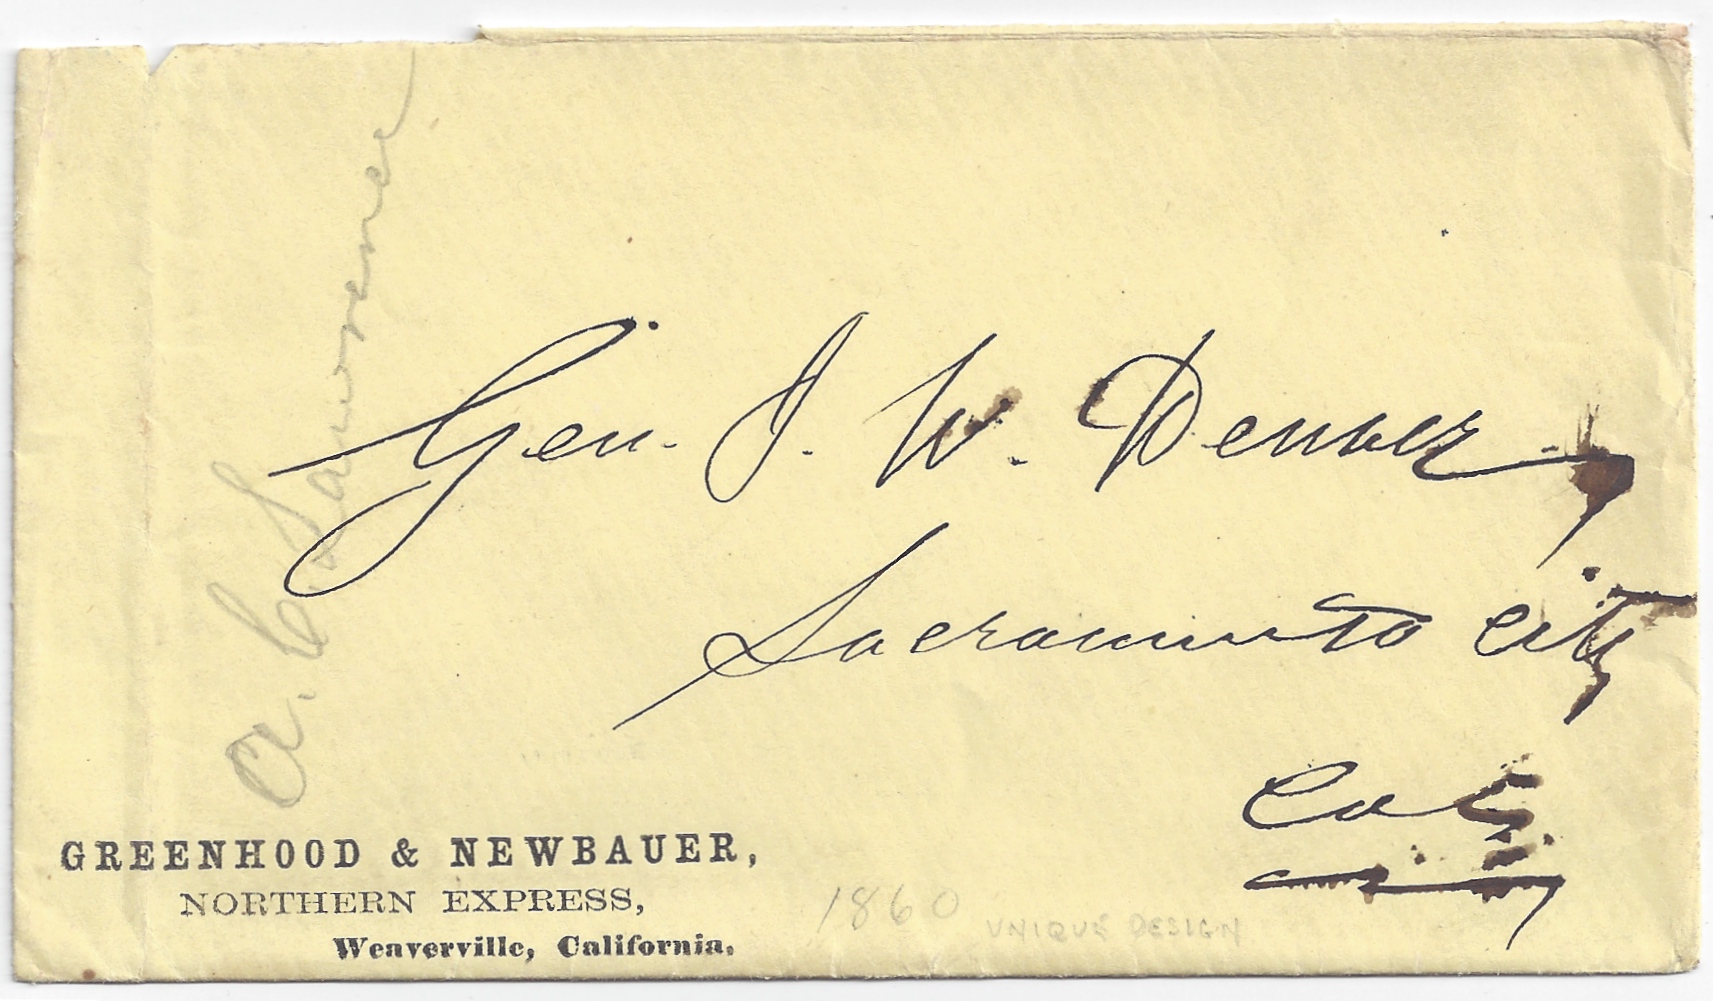 A. C. Lawrence
Gen. J. W. Denver,
Sacramento City
Cal,
GREENHOOD & NEWBAUER,
NORTHERN EXPRESS,
Weaverville, California.
1860 UNIQUE DESIGN